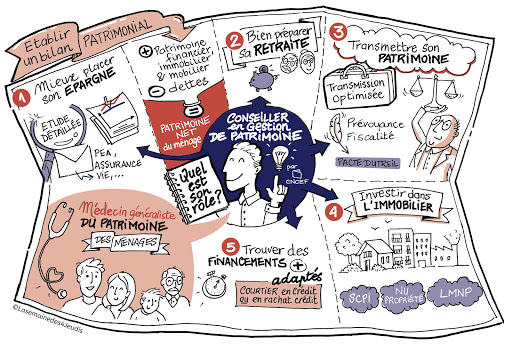 Etablir
un bilan
PATRIMONIAL
1 Mieux placer
son EPARGNE
ETUDE
DÉTAILLÉE
PEA,
ASSURANCE
VIE,...
+ Patrimoine
financier,
immobilier
& mobilier
- dettes
=
PATRIMOINE
NET
du ménage
2 Bien préparer
sa RETRAITE
3 Transmettre son
PATRIMOINE
TRANSMISSION
OPTIMISÉE
Prévoyance
Fiscalité
PACTE DUTREIL
CONSEILLER
en GESTION
DE PATRIMOINE
par
CNCEF
Quel
est
son
rôle?
Médecin généraliste
DU PATRIMOINE
DES MÉNAGES
4 Investir dans
L'IMMOBILIER
SCPI
NU
PROPRIÉTÉ
LMNP
5 Trouver des
FINANCEMENTS +
adaptés
COURTIER en crédit
ou en rachat crédit
©Lasemainedes4Jeudis